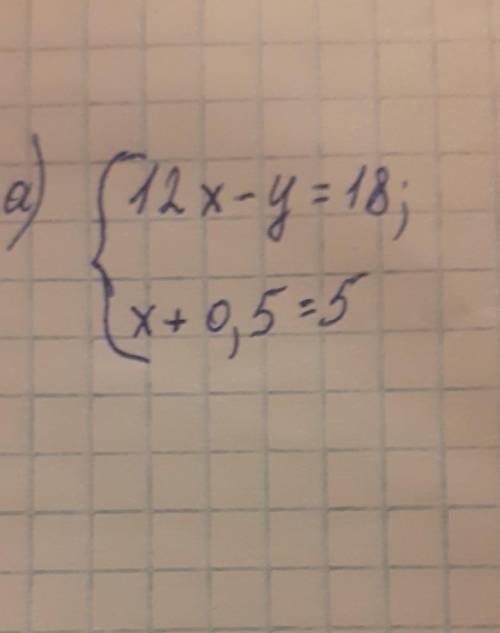 а) {12x-y=18;
x+0,5=5